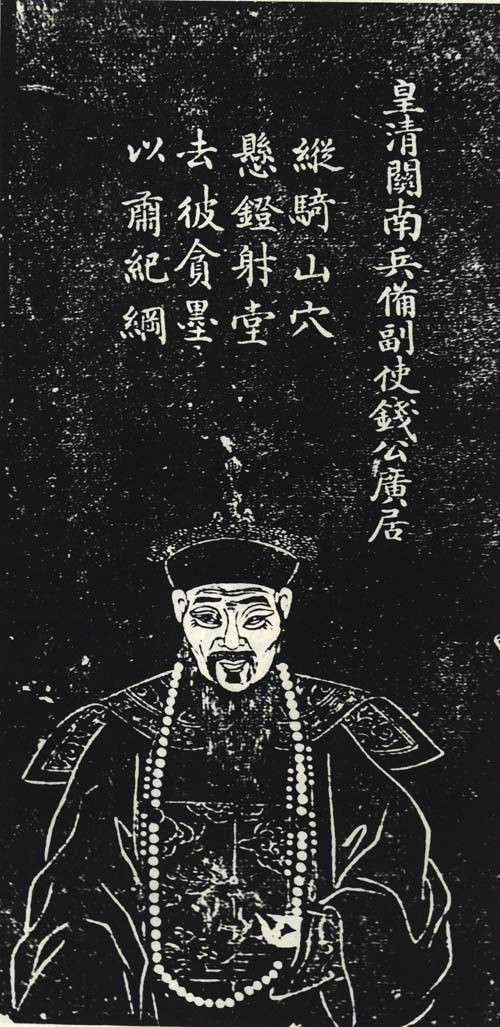 皇清關南兵備副使錢公廣居
縱騎山穴
懸鐙射堂
去彼貪墨
以肅紀綱